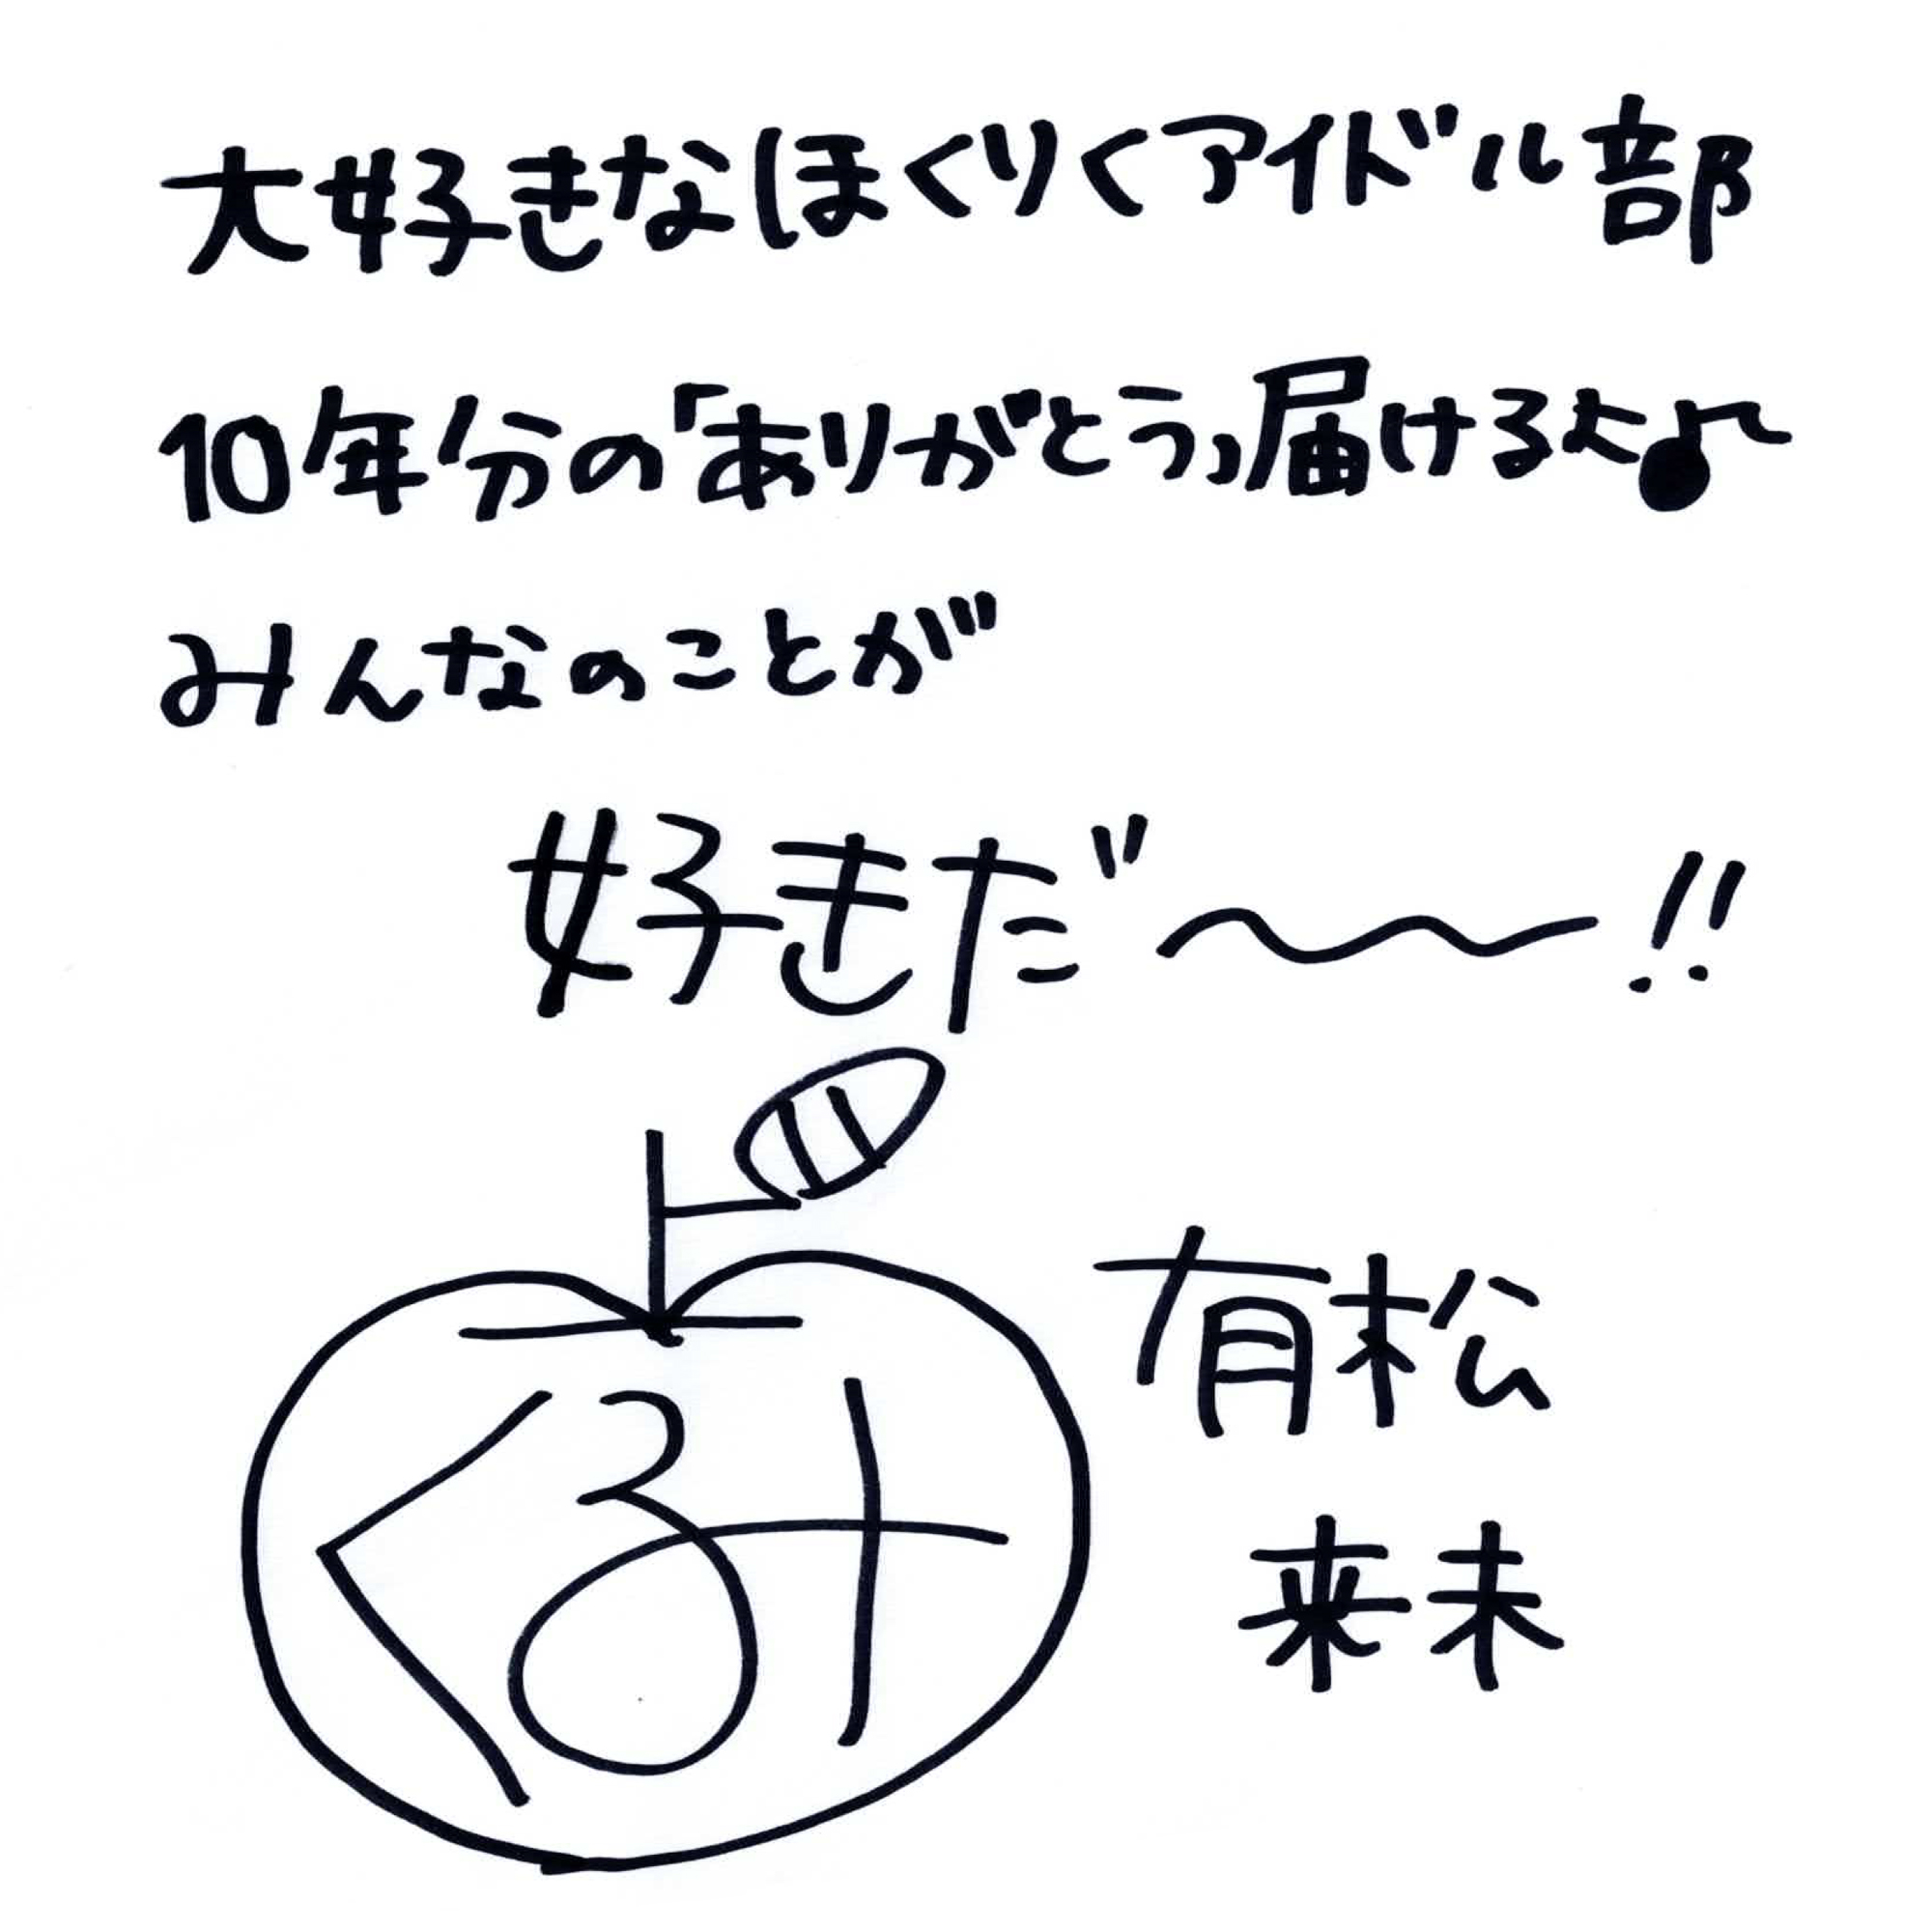 大好きなほくりくアイドル部
10年分の「ありがとう」届けるよ♪
みんなのことが
好きだ〜〜!!
有松
来未
くるみ